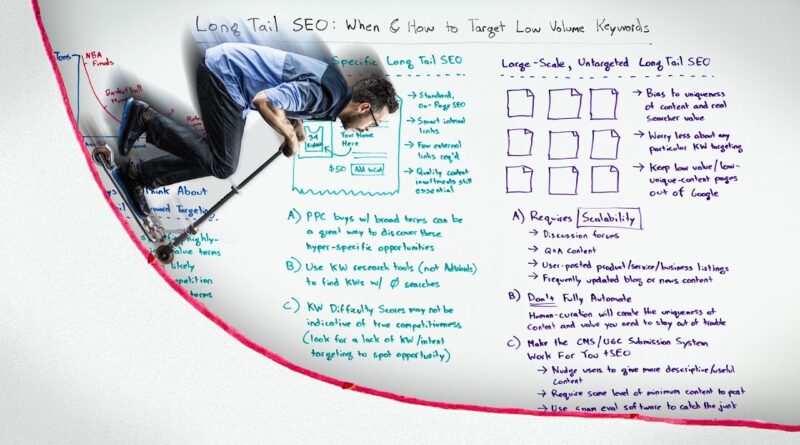 Long Tail SEO: When & How to Target Low Volume Keywords
Tons
NBA
Finals
Specific Long Tail SEO
→ Standard,
On-Page SEO
→ Smart internal
links
→ Few external
links req'd
→ Quality content
investments still
essential
Your Name
Here
$50
A) PPC buys w/ broad terms can be
a great way to discover these
hyper-specific opportunities
B) Use KW research tools (not AdWords)
to find KWs w/ Ø searches
C) KW Difficulty Scores may not be
indicative of true competitiveness
(look for a lack of KW/intent
targeting to spot opportunity)
Large-Scale, Untargeted Long Tail SEO
→ Bias to uniqueness
of content and real
searcher value
→ Worry less about any
particular KW targeting
→ Keep low value/low-
unique-content pages
out of Google
A) Requires Scalability
→ Discussion forums
→ Q+A content
→ User-posted product/service/business listings
→ Frequently updated blog or news content
B) Don't Fully Automate
Human-curation will create the uniqueness of
content and value you need to stay out of trouble
C) Make the CMS/UGC Submission System
Work For You + SEO
→ Nudge users to give more descriptive/useful
content
→ Require some level of minimum content to post
→ Use spam eval software to catch the junk
Think About
Keyword Targeting
highly-
value terms
likely
terms